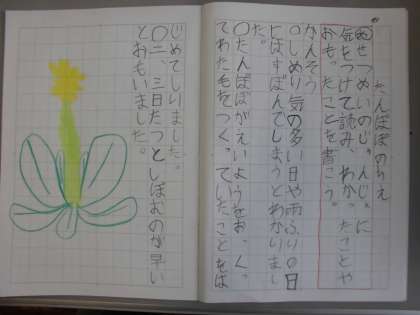 たんぽぽのちえ
めせつめいのじゅんじょに
気をつけて読み、わかったことや
おもったことを書こう。
かんそう
○しめり気の多い日や雨ふりの日
にはすぼんでしまうとわかりまし
た。
○たんぽぽがえいようをおくって
てわた毛をつくっていたことをは
じめてしりました。
○二、三日たつとしぼむのが早い
とおもいました。